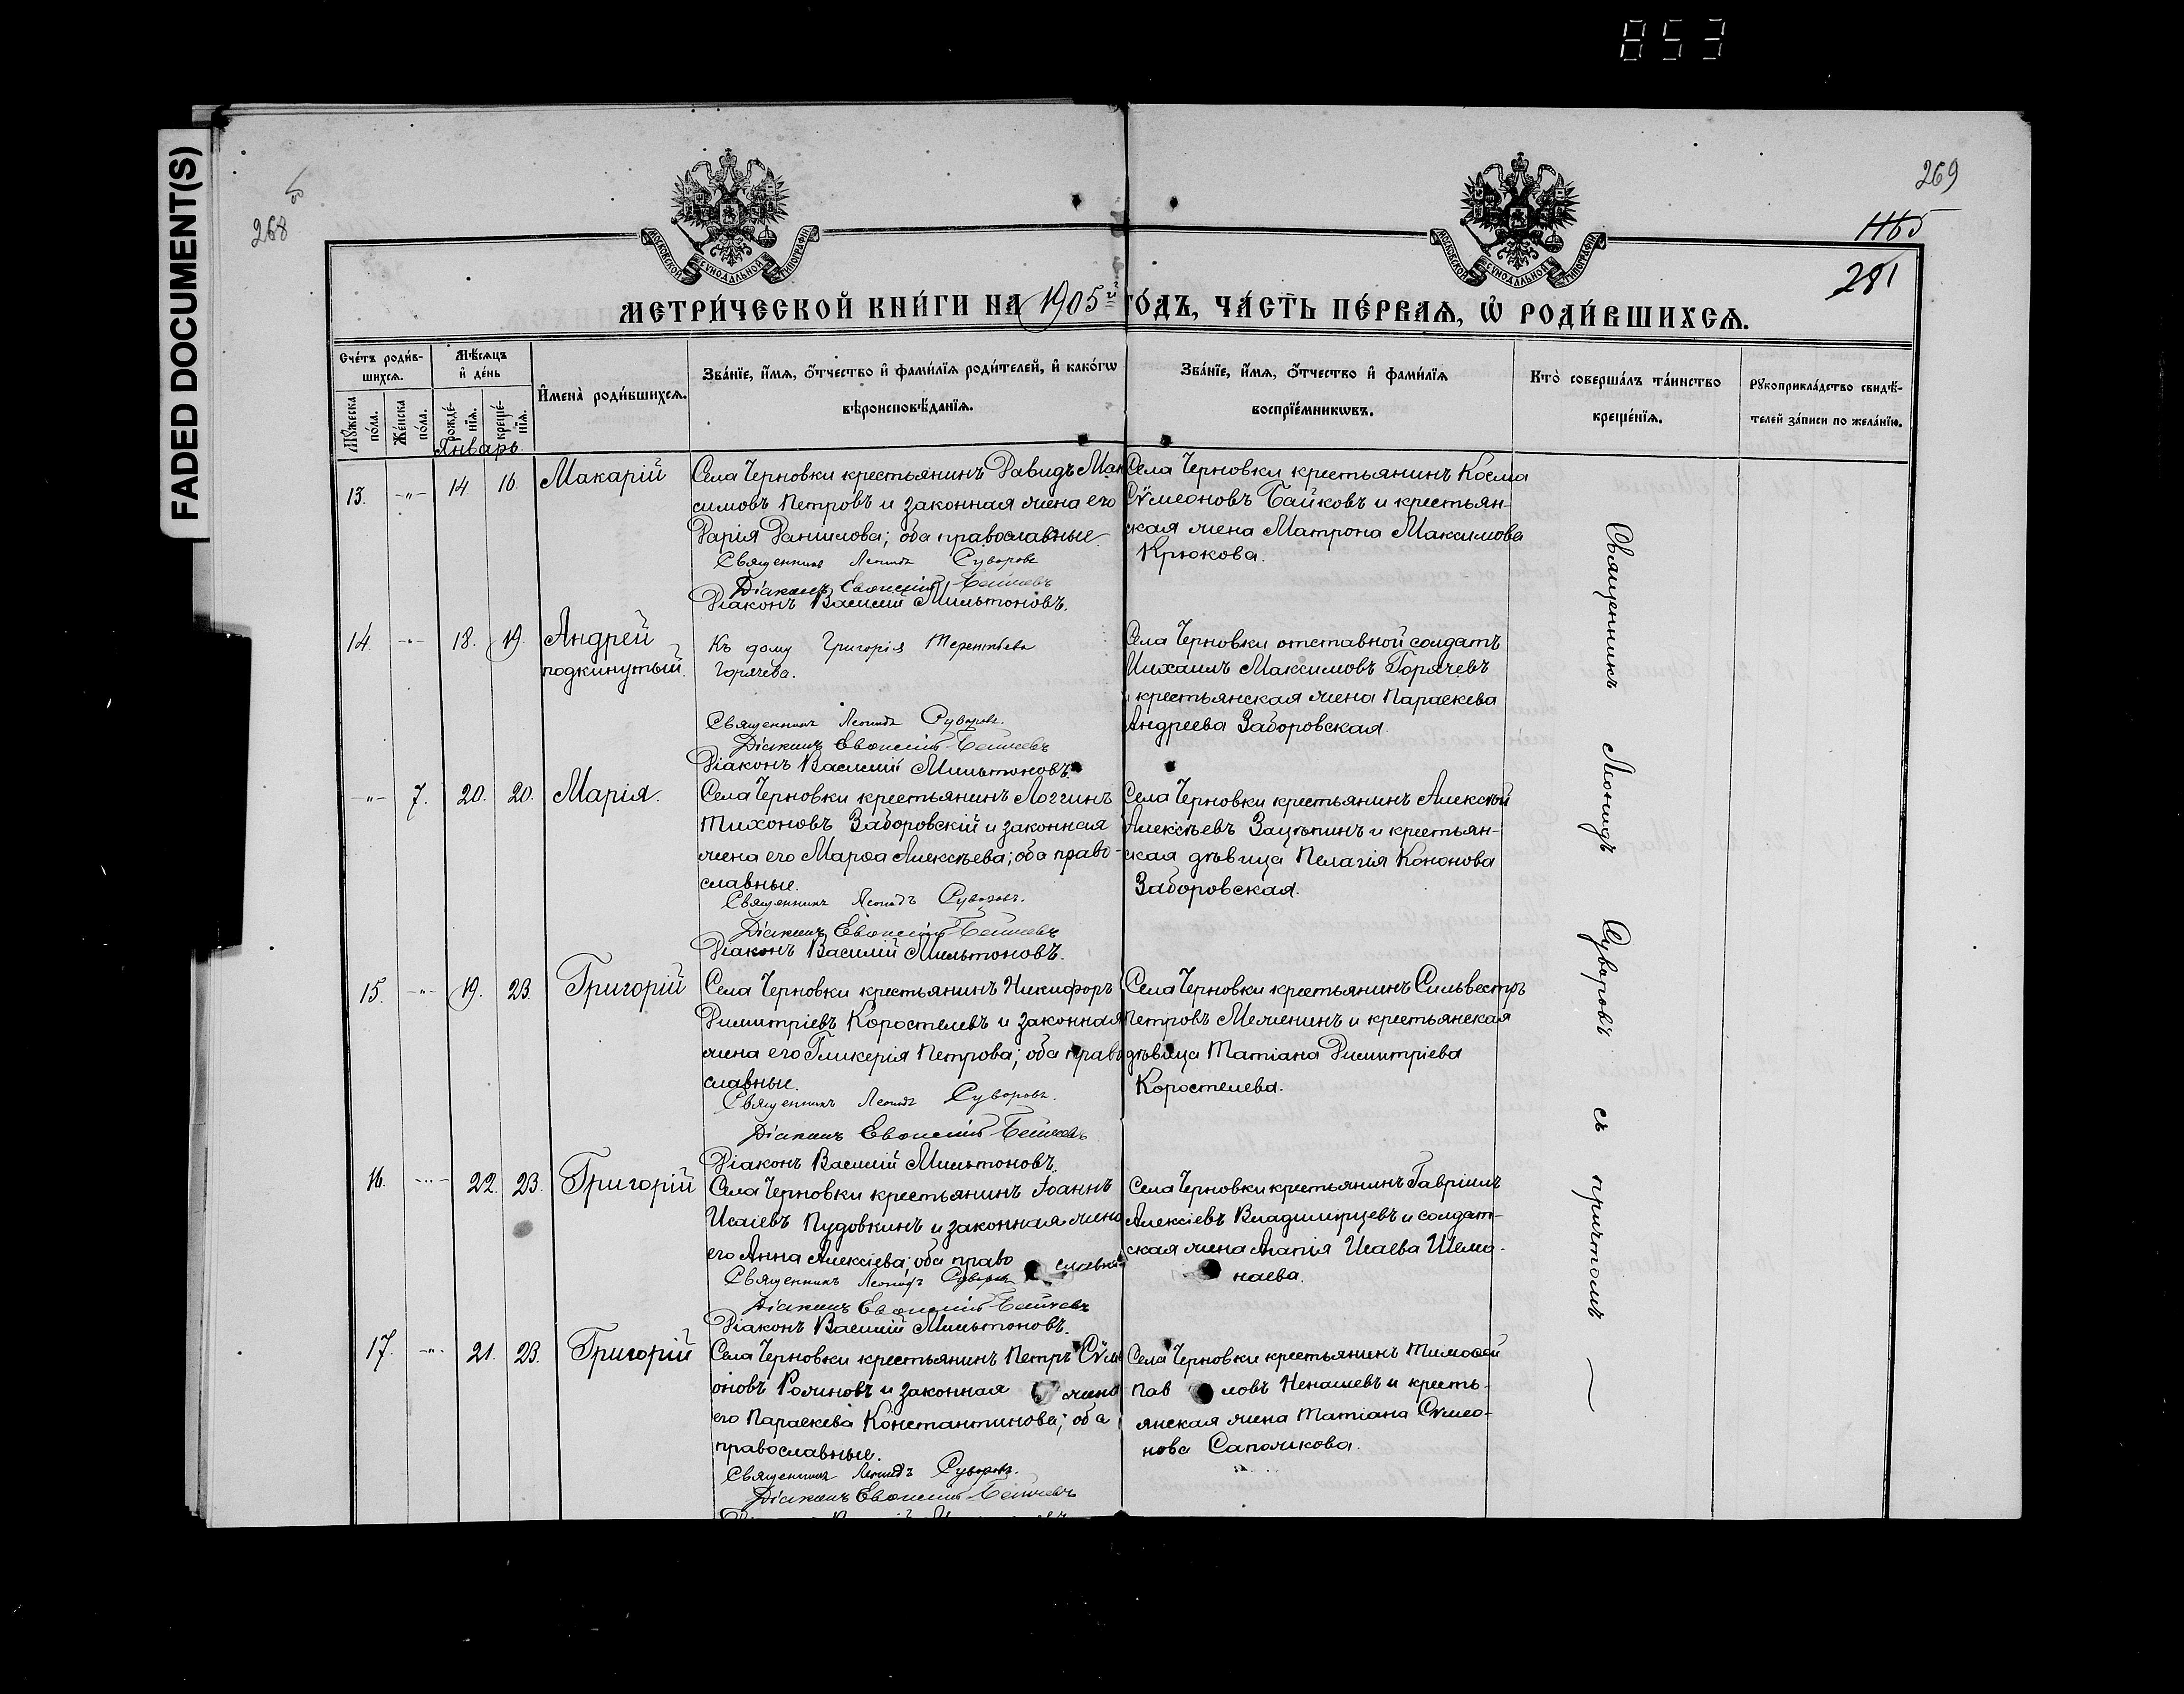 853
FADED DOCUMENT(S)
268
269
1165
281
МОСКОВСКОЙ СѴНОДАЛЬНОЙ ТИПОГРАФІИ
МОСКОВСКОЙ СѴНОДАЛЬНОЙ ТИПОГРАФІИ
МЕТРИ́ЧЕСКОЙ КНИ́ГИ НА 1905й ГО́ДЪ, ЧА́СТЬ ПЕ́РВАѦ, Ѡ҆ РОДИ́ВШИХСѦ.
Сче́тъ роди́в-
шихсѧ.
Мѣ́сѧцъ
и҆ де́нь
И҆мена̀ роди́вшихсѧ.
Зва́нїе, и҆́мѧ, ѻ҆́тчество и҆ фами́лїѧ роди́телей, и҆ како́гѡ
вѣроисповѣ́данїѧ.
Зва́нїе, и҆́мѧ, ѻ҆́тчество и҆ фами́лїѧ
воспрїе́мникѡвъ.
Кто̀ соверша́лъ та́инство
креще́нїѧ.
Рꙋкоприкла́дство свидѣ́-
телей за́писи по жела́нїю.
Мꙋ́жеска
по́ла.
Же́нска
по́ла.
рожде́-
нїѧ.
креще́-
нїѧ.
Январь.
13. -"- 14 16. Макарій
Села Черновки крестьянинъ Давидъ Мак
симовъ Петровъ и законная жена его
Дарія Данилова; оба православные
Священникъ Леонидъ Суворовъ
Діаконъ
Діаконъ Василій Мильтоновъ.
Села Черновки крестьянинъ Косма
Сѵмеоновъ Байковъ и крестьян-
ская жена Матрона Максимова
Крюкова.
14. -"- 18. 19. Андрей
подкинутый.
Къ дому Григорія Терентьева
Горячева.
Священникъ Леонидъ Суворовъ.
Діаконъ
Діаконъ Василій Мильтоновъ.
Села Черновки отставной солдатъ
Михаилъ Максимовъ Горячевъ
и крестьянская жена Параскева
Андреева Заборовская.
-"- 7. 20. 20. Марія.
Села Черновки крестьянинъ Логгинъ
Тихоновъ Заборовскій и законная
жена его Марѳа Алексѣева; оба право-
славные.
Священникъ Леонидъ Суворовъ.
Діаконъ
Діаконъ Василій Мильтоновъ.
Села Черновки крестьянинъ Алексѣй
Алексѣевъ Зацѣпинъ и крестьян-
ская дѣвица Пелагія Кононова
Заборовская.
15. -"- 19. 23. Григорій
Села Черновки крестьянинъ Никифоръ
Димитріевъ Коростелевъ и законная
жена его Гликерія Петрова; оба право
славные.
Священникъ Леонидъ Суворовъ.
Діаконъ
Діаконъ Василій Мильтоновъ.
Села Черновки крестьянинъ Сильвестръ
Петровъ Меженинъ и крестьянская
дѣвица Татіана Димитріева
Коростелева.
16. -"- 22. 23. Григорій
Села Черновки крестьянинъ Іоаннъ
Исаіевъ Пудовкинъ и законная жена
его Анна Алексіева; оба право славные
Священникъ Леонидъ Суворовъ
Діаконъ
Діаконъ Василій Мильтоновъ.
Села Черновки крестьянинъ Гавріилъ
Алексіевъ Владимірцевъ и солдат-
ская жена Агапія Исаева Шема-
наева.
17. -"- 21. 23. Григорій
Села Черновки крестьянинъ Петръ Сѵме
оновъ Рожновъ и законная жена
его Параскева Константинова; оба
православные.
Священникъ Леонидъ Суворовъ.
Діаконъ
Села Черновки крестьянинъ Тимоѳей
Пав ловъ Ненашевъ и кресть-
янская жена Татіана Сѵмео-
нова Сапожкова.
Священникъ Леонидъ Суворовъ съ причтомъ